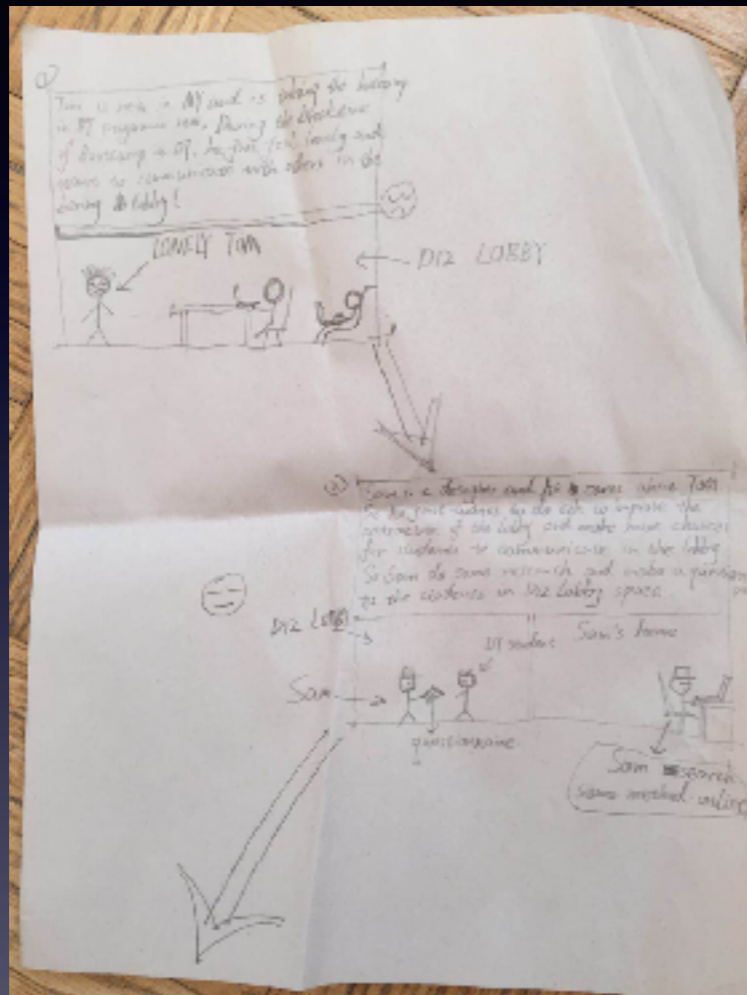 ①
Tom is new in NY and is taking the
in DT programme now. During the
of Bootcamp in DT, he feel lonely and
wants to communicate with others in the
boring lobby!
LONELY TOM
D12 LOBBY
②
Sam is a designer and he Tom
So he to improve the
of the lobby and make more chances
for students to communicate in the lobby
So Sam do some research and make a
to the students in D12 lobby space
D12 LOBBY
DT student
Sam's home
Sam
questionnaire
Sam search
some method online